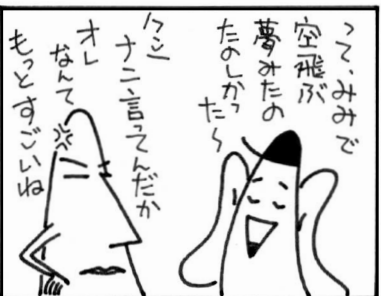 って、みみで
空飛ぶ
夢みたの
たのしかっ
た〜
ケッ
ナニ言ってんだか
オレ
なんて
もっとすごいね